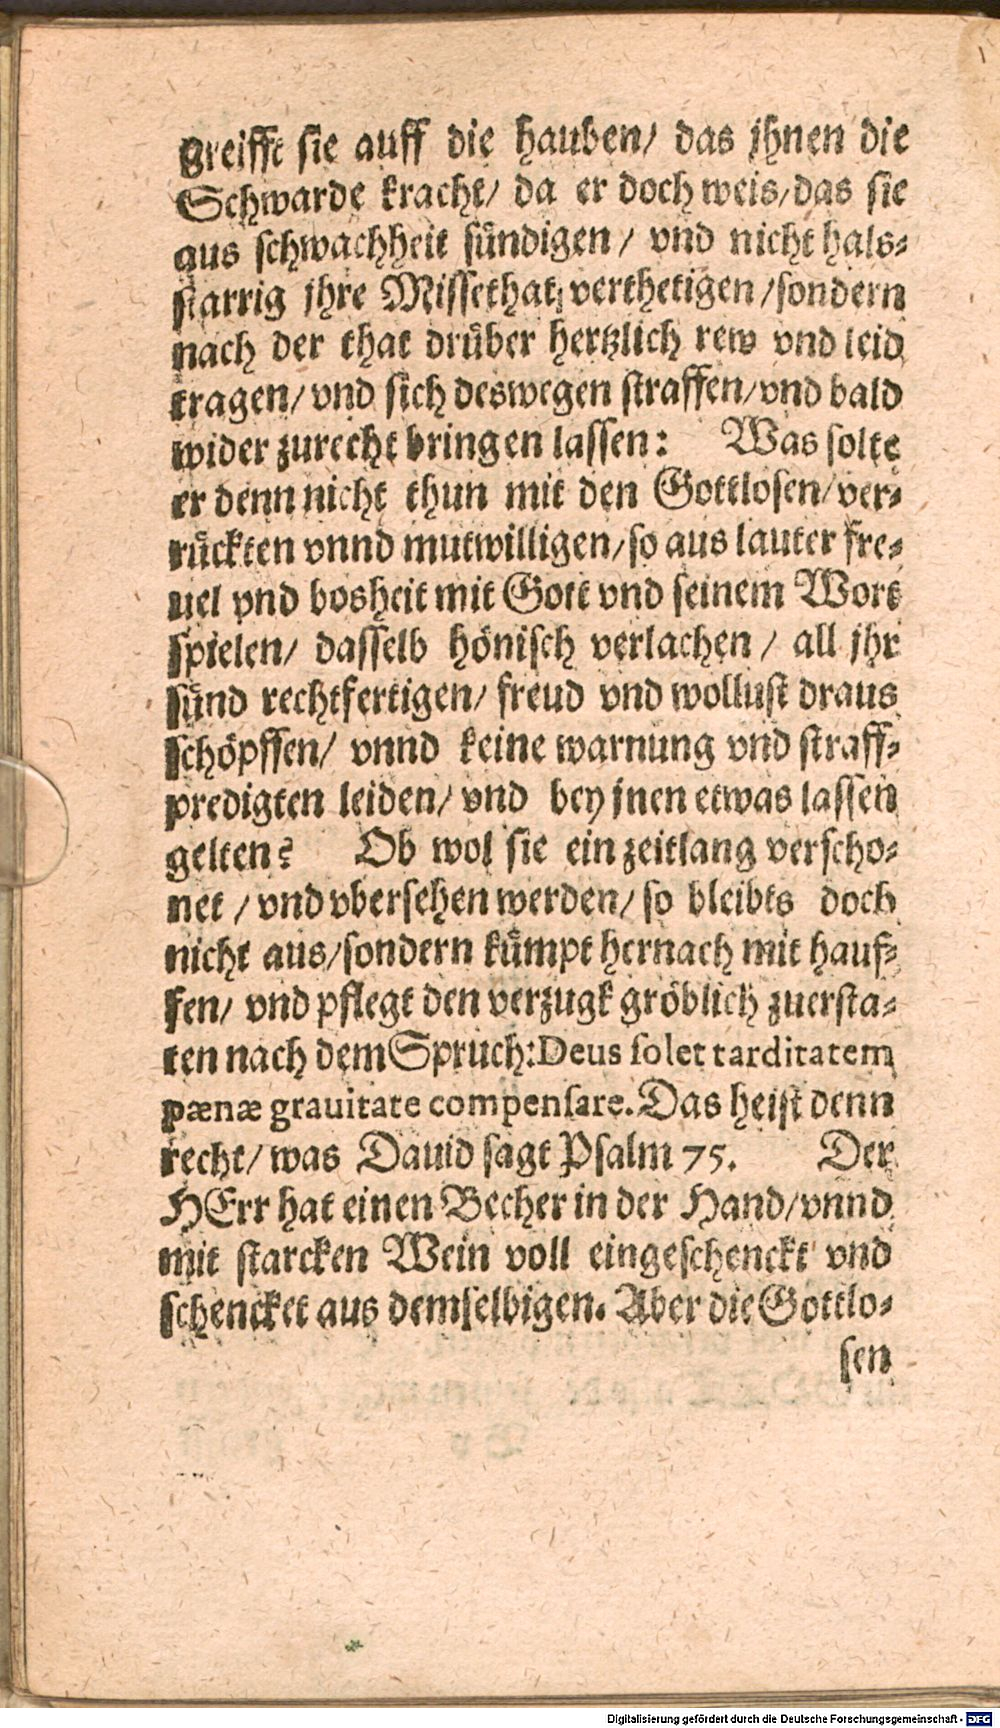 greifft sie auff die hauben/ das jhnen die
Schwarde kracht/ da er doch weis/das sie
aus schwachheit sündigen / vnd nicht hals-
starrig jhre Missethat verthetigen /sondern
nach der that drüber hertzlich rew vnd leid
tragen/ vnd sich deswegen straffen/vnd bald
wider zurecht bringen lassen: Was solte
er denn nicht thun mit den Gottlosen/ ver-
rückten vnnd mutwilligen/so aus lauter fre-
uel vnd bosheit mit Gott vnd seinem Wort
spielen/ dasselb hönisch verlachen / all jhr
sünd rechtfertigen/ freud vnd wollust draus
schöpffen/ vnnd keine warnung vnd straff-
predigten leiden/ vnd bey jnen etwas lassen
gelten? Ob wol sie ein zeitlang verscho-
net / vnd vbersehen werden/ so bleibts doch
nicht aus/sondern kümpt hernach mit hauf-
fen/ vnd pflegt den verzugk gröblich zuersta-
ten nach dem Spruch: Deus solet tarditatem
pænæ grauitate compensare. Das heist denn
recht/ was Dauid sagt Psalm 75. Der
HErr hat einen Becher in der Hand/vnnd
mit starcken Wein voll eingeschenckt vnd
schencket aus demselbigen. Aber die Gottlo-
sen
Digitalisierung gefördert durch die Deutsche Forschungsgemeinschaft - DFG